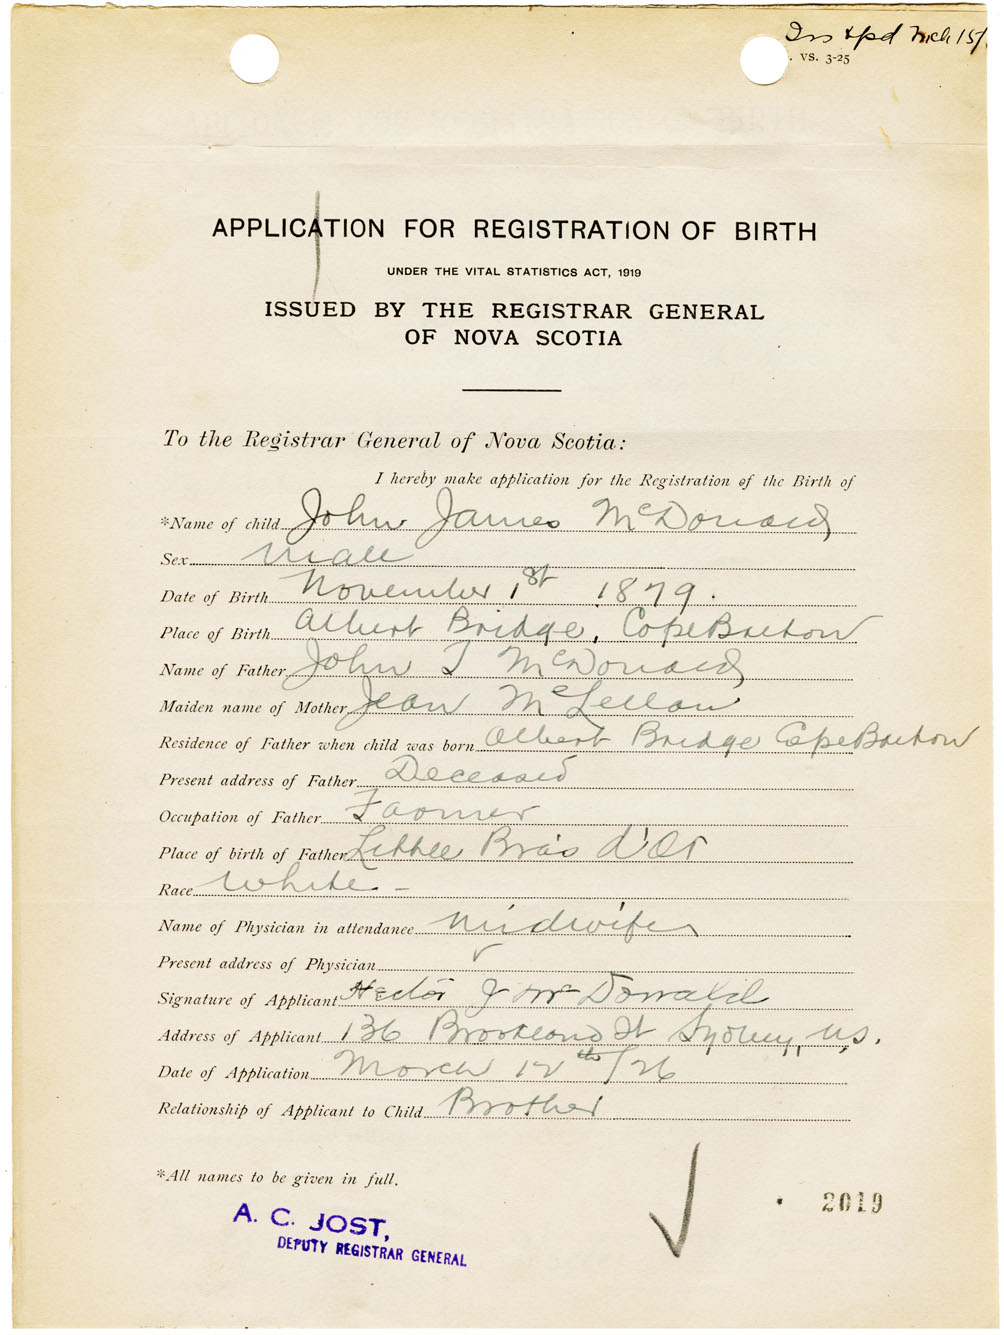 Ins & pd Mch 15/
. VS. 3-25
APPLICATION FOR REGISTRATION OF BIRTH
UNDER THE VITAL STATISTICS ACT, 1919
ISSUED BY THE REGISTRAR GENERAL
OF NOVA SCOTIA
To the Registrar General of Nova Scotia:
I hereby make application for the Registration of the Birth of
*Name of child John James McDonald
Sex male
Date of Birth November 1st 1879.
Place of Birth Albert Bridge, Cape Breton
Name of Father John J McDonald
Maiden name of Mother Jean McLellan
Residence of Father when child was born Albert Bridge Cape Breton
Present address of Father Deceased
Occupation of Father Farmer
Place of birth of Father Little Bras d'Or
Race White -
Name of Physician in attendance midwife
Present address of Physician
Signature of Applicant Hector J McDonald
Address of Applicant 136 St Sydney, N.S.
Date of Application March 12th/26
Relationship of Applicant to Child Brother
*All names to be given in full.
2019
A. C. JOST,
DEPUTY REGISTRAR GENERAL